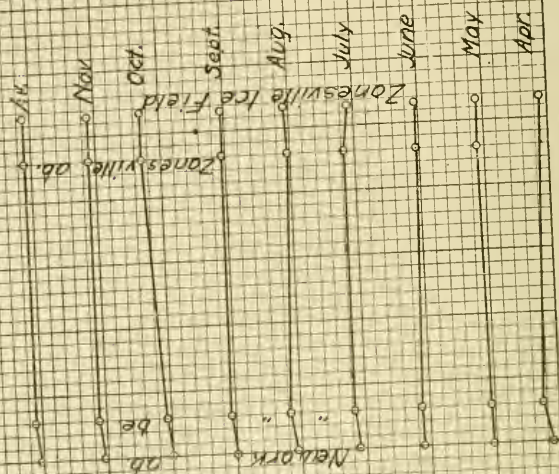 Av.
Nov
Oct.
Sept.
Aug.
July
June
May
Apr.
Zanesville Ice Field
Zanesville, ab.
be " "
ab Newark